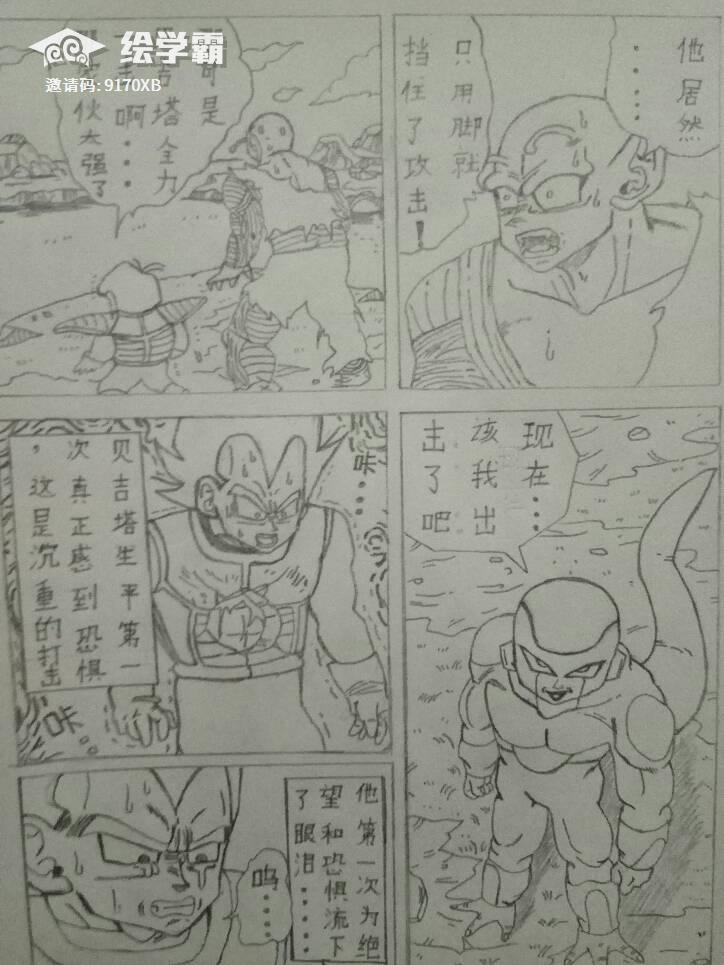 绘学霸
邀请码: 9170XB
他居然
……
只用脚就
挡住了攻击！
可是
吉塔全力
手啊……
伙太强了
现在…
该我出
击了吧
咔……
贝吉塔生平第一
次真正感到恐惧
，这是沉重的打击
咔。
他第一次为绝
望和恐惧流下
了眼泪……
呜……